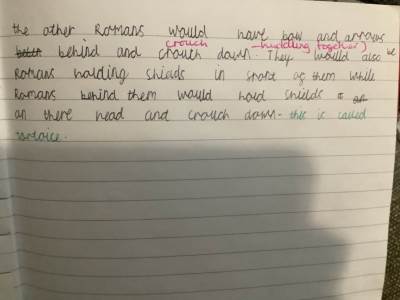 the other Romans would have bow and arrows
crouch - hudding together)
behind and chouch down. They would also be
Romans holding shields in front of them while
Romans behind them would hold shields
on there head and crouch down. this is called
tortoice.